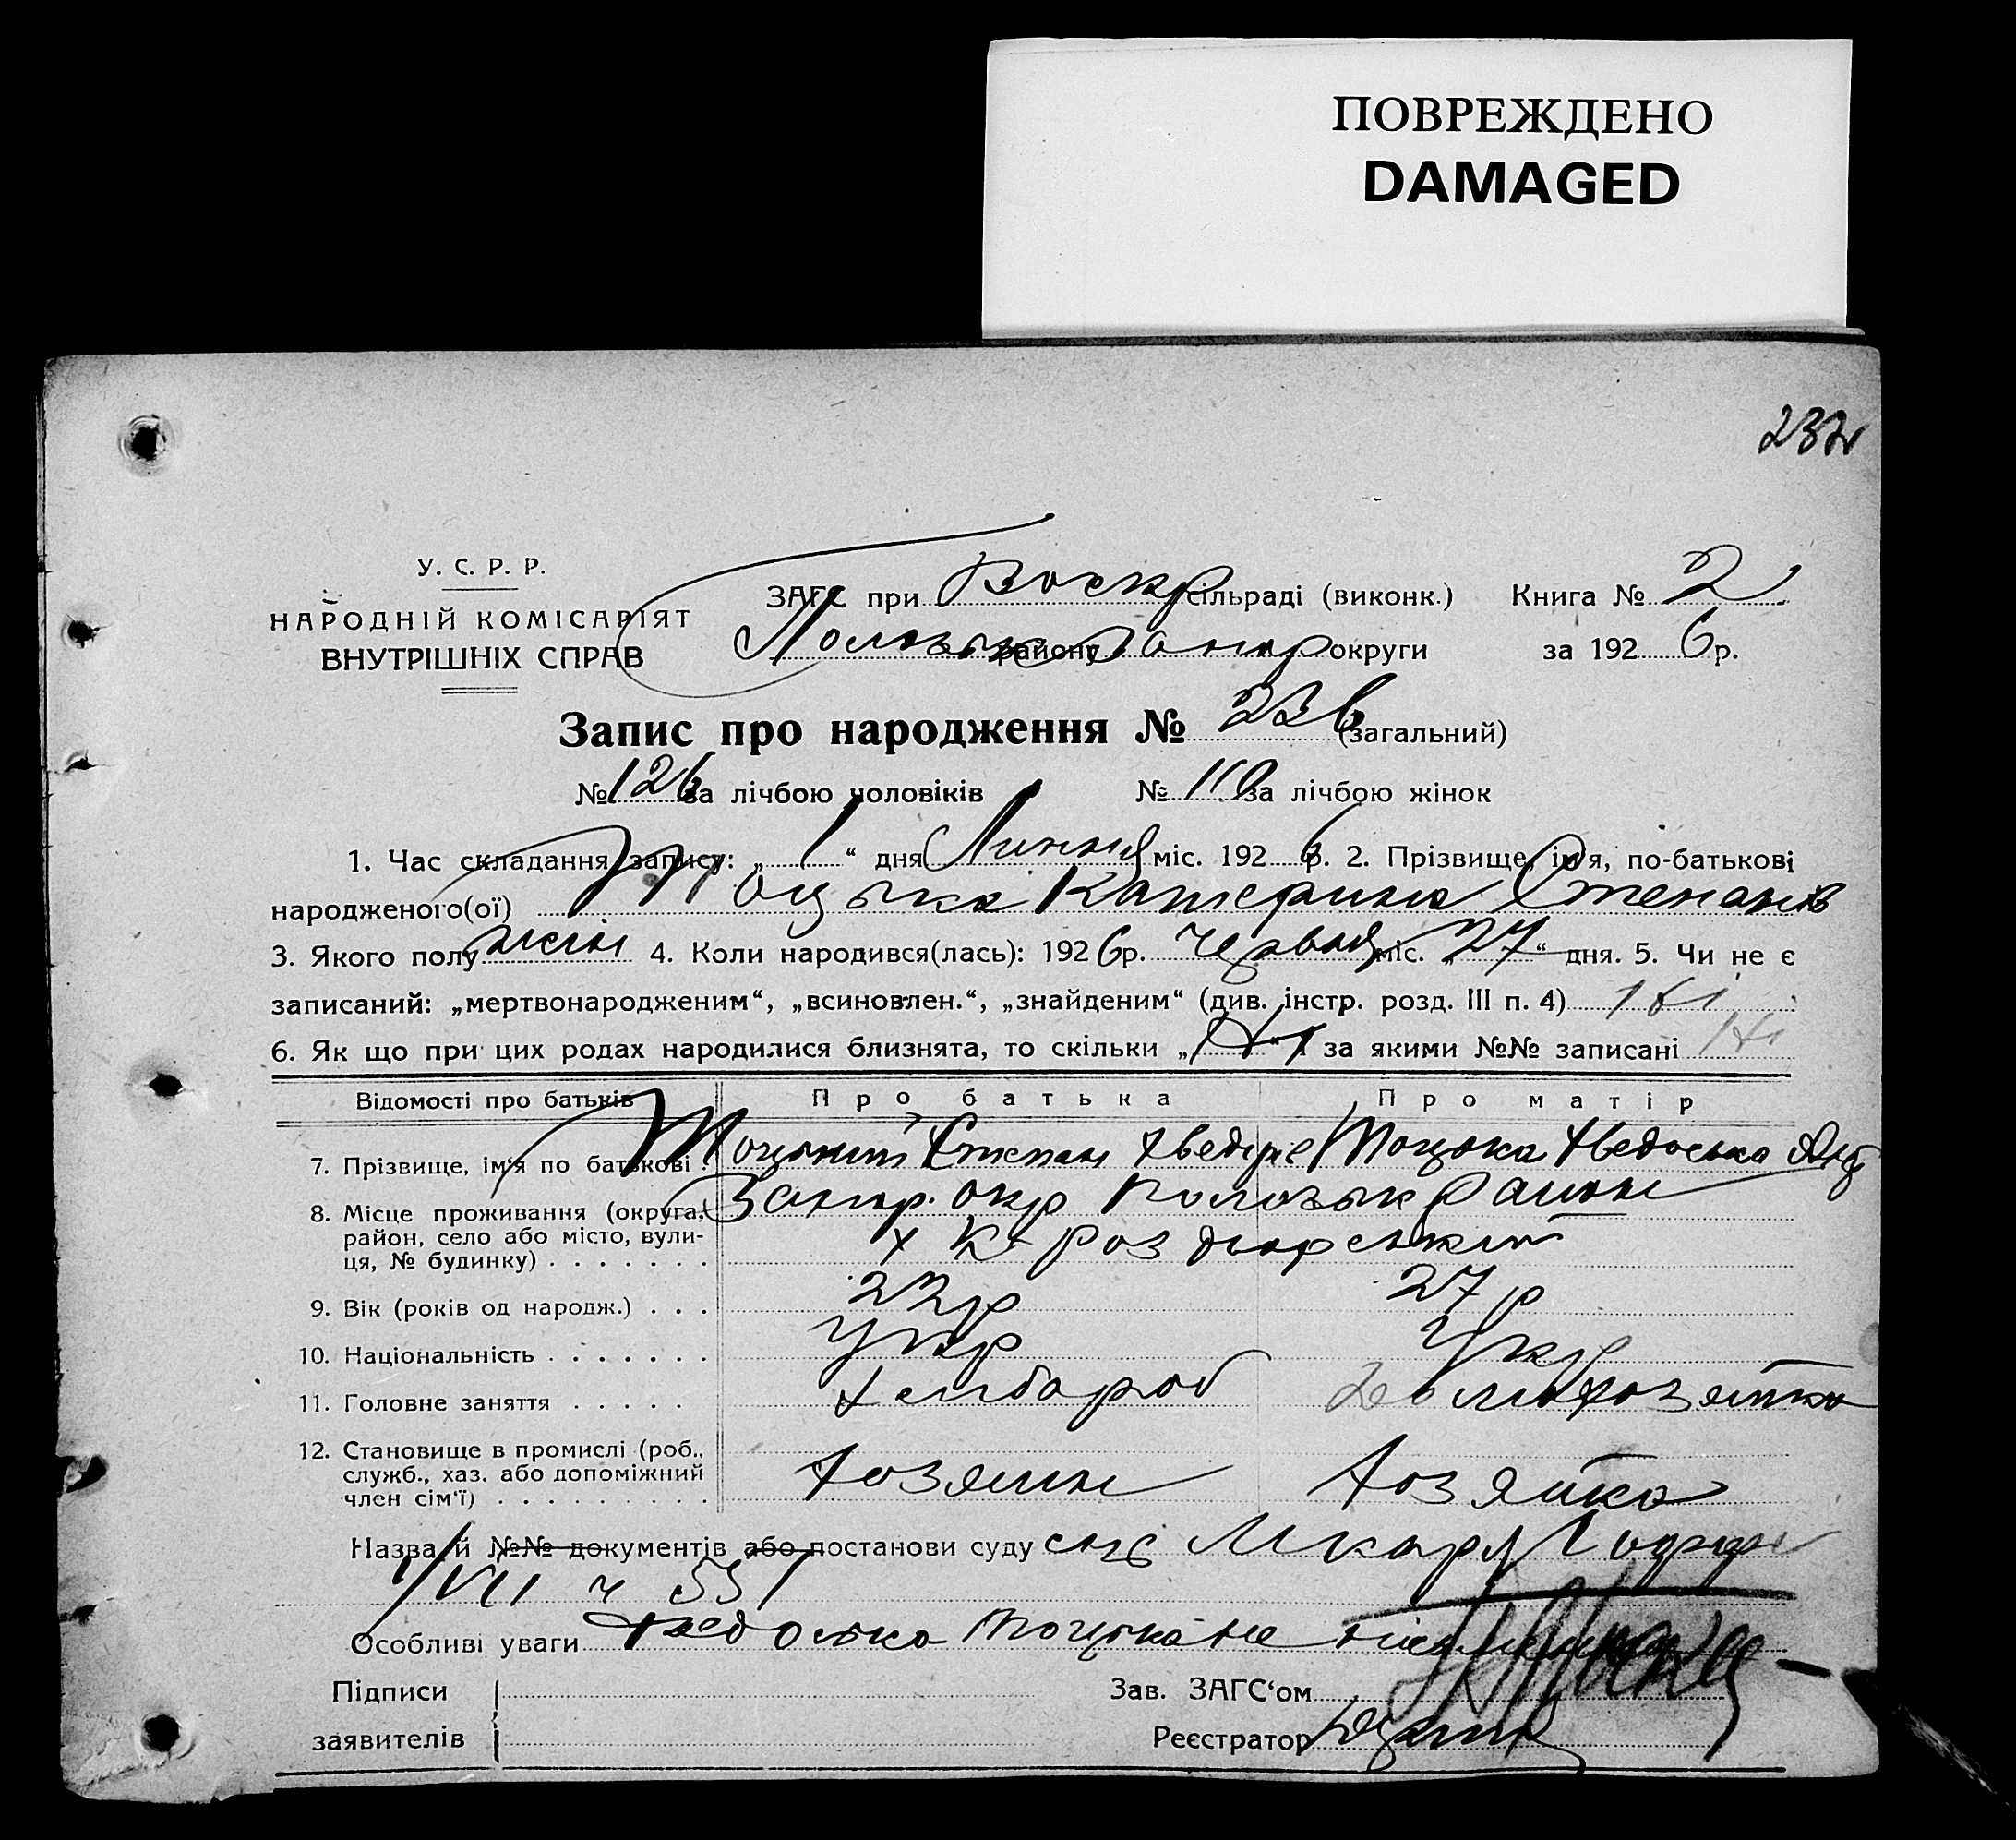 ПОВРЕЖДЕНО
DAMAGED
232
У. С. Р. Р.
НАРОДНІЙ КОМІСАРІЯТ
ВНУТРІШНІХ СПРАВ
ЗАГС при Воскр сільраді (виконк.) Книга № 2
району Запор округи за 1926 р.
Запис про народження № 236 (загальний)
№ 126 за лічбою чоловіків № 110 за лічбою жінок
1. Час складання запису: „ 1 “ дня Липня міс. 1926 р. 2. Прізвище, ім'я, по-батькові
народженого(ої) Тоцька Катерина Степанів
3. Якого полу жін 4. Коли народився(лась): 1926 р. Червня міс. „ 27 “ дня. 5. Чи не є
записаний: „мертвонародженим“, „всиновлен.“, „знайденим“ (див. інстр. розд. III п. 4) Ні
6. Як що при цих родах народилися близнята, то скільки „ Ні “ за якими №№ записані Ні
Відомості про батьків Про батька Про матір
7. Прізвище, ім'я по батькові . Тоцький Степан Хведорів Тоцька Хведоська
8. Місце проживання (округа, Запор. окр Район
район, село або місто, вули-
ця, № будинку) . . . . . . .
9. Вік (років од народж.) . . . 22 р 27 р
10. Національність . . . . . . . Укр Укр
11. Головне заняття . . . . . Хлібороб домохозяйка
12. Становище в промислі (роб.,
служб., хаз. або допоміжний Хозяин Хозяйка
член сім'ї) . . . . . . . . .
Назва й №№ документів або постанови суду
1/VII ч 551
Особливі уваги Хведоська Тоцька не
Підписи
заявителів
Зав. ЗАГС'ом
Реєстратор